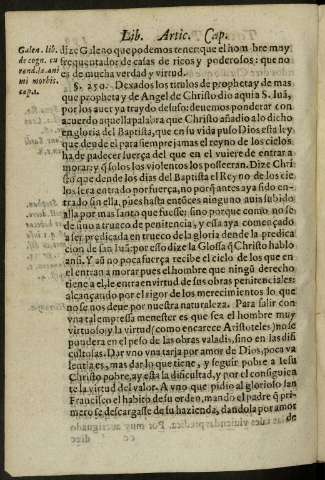 Lib. Artic. Cap.
Galen. lib.
de cogn. cu
rand. da. ani
mi morbis.
cap. 2.
dize Galeno que podemos tener, que el hombre muy
frequentador de casas de ricos y poderosos: que no
es de mucha verdad y virtud.
§. 250. Dexados los titulos de propheta y de mas
que propheta y de Angel de Christo dio aqui a S. Iuã,
por los auer ya traydo de suso: deuemos ponderar con
acuerdo aquella palabra que Christo añadio a lo dicho
en gloria del Baptista, que en su vida puso Dios esta ley
que dende el para siempre jamas el reyno de los cielos
ha de padecer fuerça del que en el vuiere de entrar a
morar: y q̃ solos los violentos los posseerran. Dize Chri
sto que dende los dias del Baptista el Reyno de los cie
los sera entrado por fuerça, no porq̃ antes aya sido en-
trado sin ella, pues hasta entõces ninguno auia subido
alla por mas santo que fuesse; sino porque como no se
de vno a trueco de penitencia, y essa aya començado
a ser predicada en trueco de la gloria dende la predica
cion de san Iuã: por esso dize la Glossa q̃ Christo hablo
ansi. Y aũ no poca fuerça recibe el cielo de los que en
el entran a morar pues el hombre que ningũ derecho
tiene a el, le entra en virtud de sus obras penitenciales:
alcançando por el rigor de los merecimientos lo que
no se nos deue por nuestra naturaleza. Para salir con
vna tal empressa menester es que sea el hombre muy
virtuoso: y la virtud (como encarece Aristoteles) no se
pondera en el peso de las obras valadis, sino en las difi
cultosas. Dar vno vna tarja por amor de Dios, poca va
lentia es, mas dar lo que tiene, y seguir pobre a Iesu
Christo pobre, ay esta la dificultad, y por el consiguien
te la virtud del valor. A vno que pidio al glorioso san
Francisco el habito de su orden, mando el padre q̃ pri-
mero se descargasse de su hazienda, dandola por amor
de